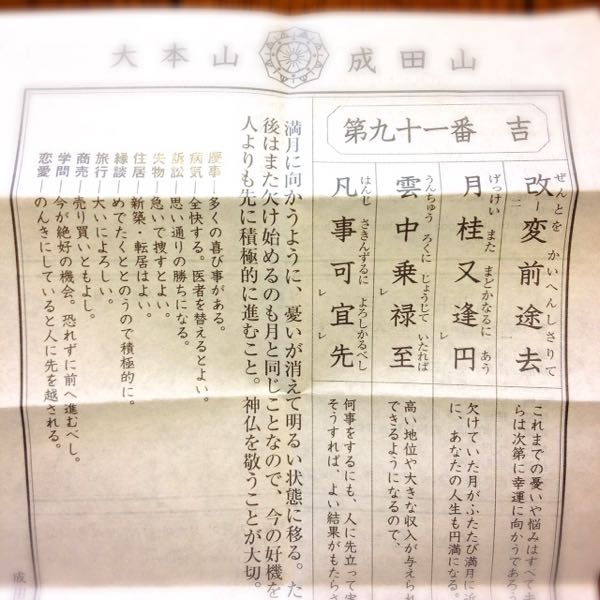 大本山 成田山
第九十一番 吉
ぜんとを かいへんしさりて
改変前途去
これまでの憂いや悩みはすべて
らは次第に幸運に向かうであろ
げっけい また まどかなるに あう
月桂又逢円
欠けていた月がふたたび満月に近
に、あなたの人生も円満になる。
うんちゅう ろくに じょうじて いたれば
雲中乗禄至
高い地位や大きな収入が与えられ
できるようになるので、
はんじ さきんずるに よろしかるべし
凡事可宜先
何事をするにも、人に先立って
そうすれば、よい結果がもたらさ
満月に向かうように、憂いが消えて明るい状態に移る。た
後はまた欠け始めるのも月と同じことなので、今の好機を
人よりも先に積極的に進むこと。神仏を敬うことが大切。
慶事―多くの喜び事がある。
病気―全快する。医者を替えるとよい。
訴訟―思い通りの勝ちになる。
失物―急いで捜すとよい。
住居―新築・転居はよい。
縁談―めでたくととのうので積極的に。
旅行―大いによろしい。
商売―売り買いともよし。
学問―今が絶好の機会。恐れずに前へ進むべし。
恋愛―のんきにしていると人に先を越される。
成田